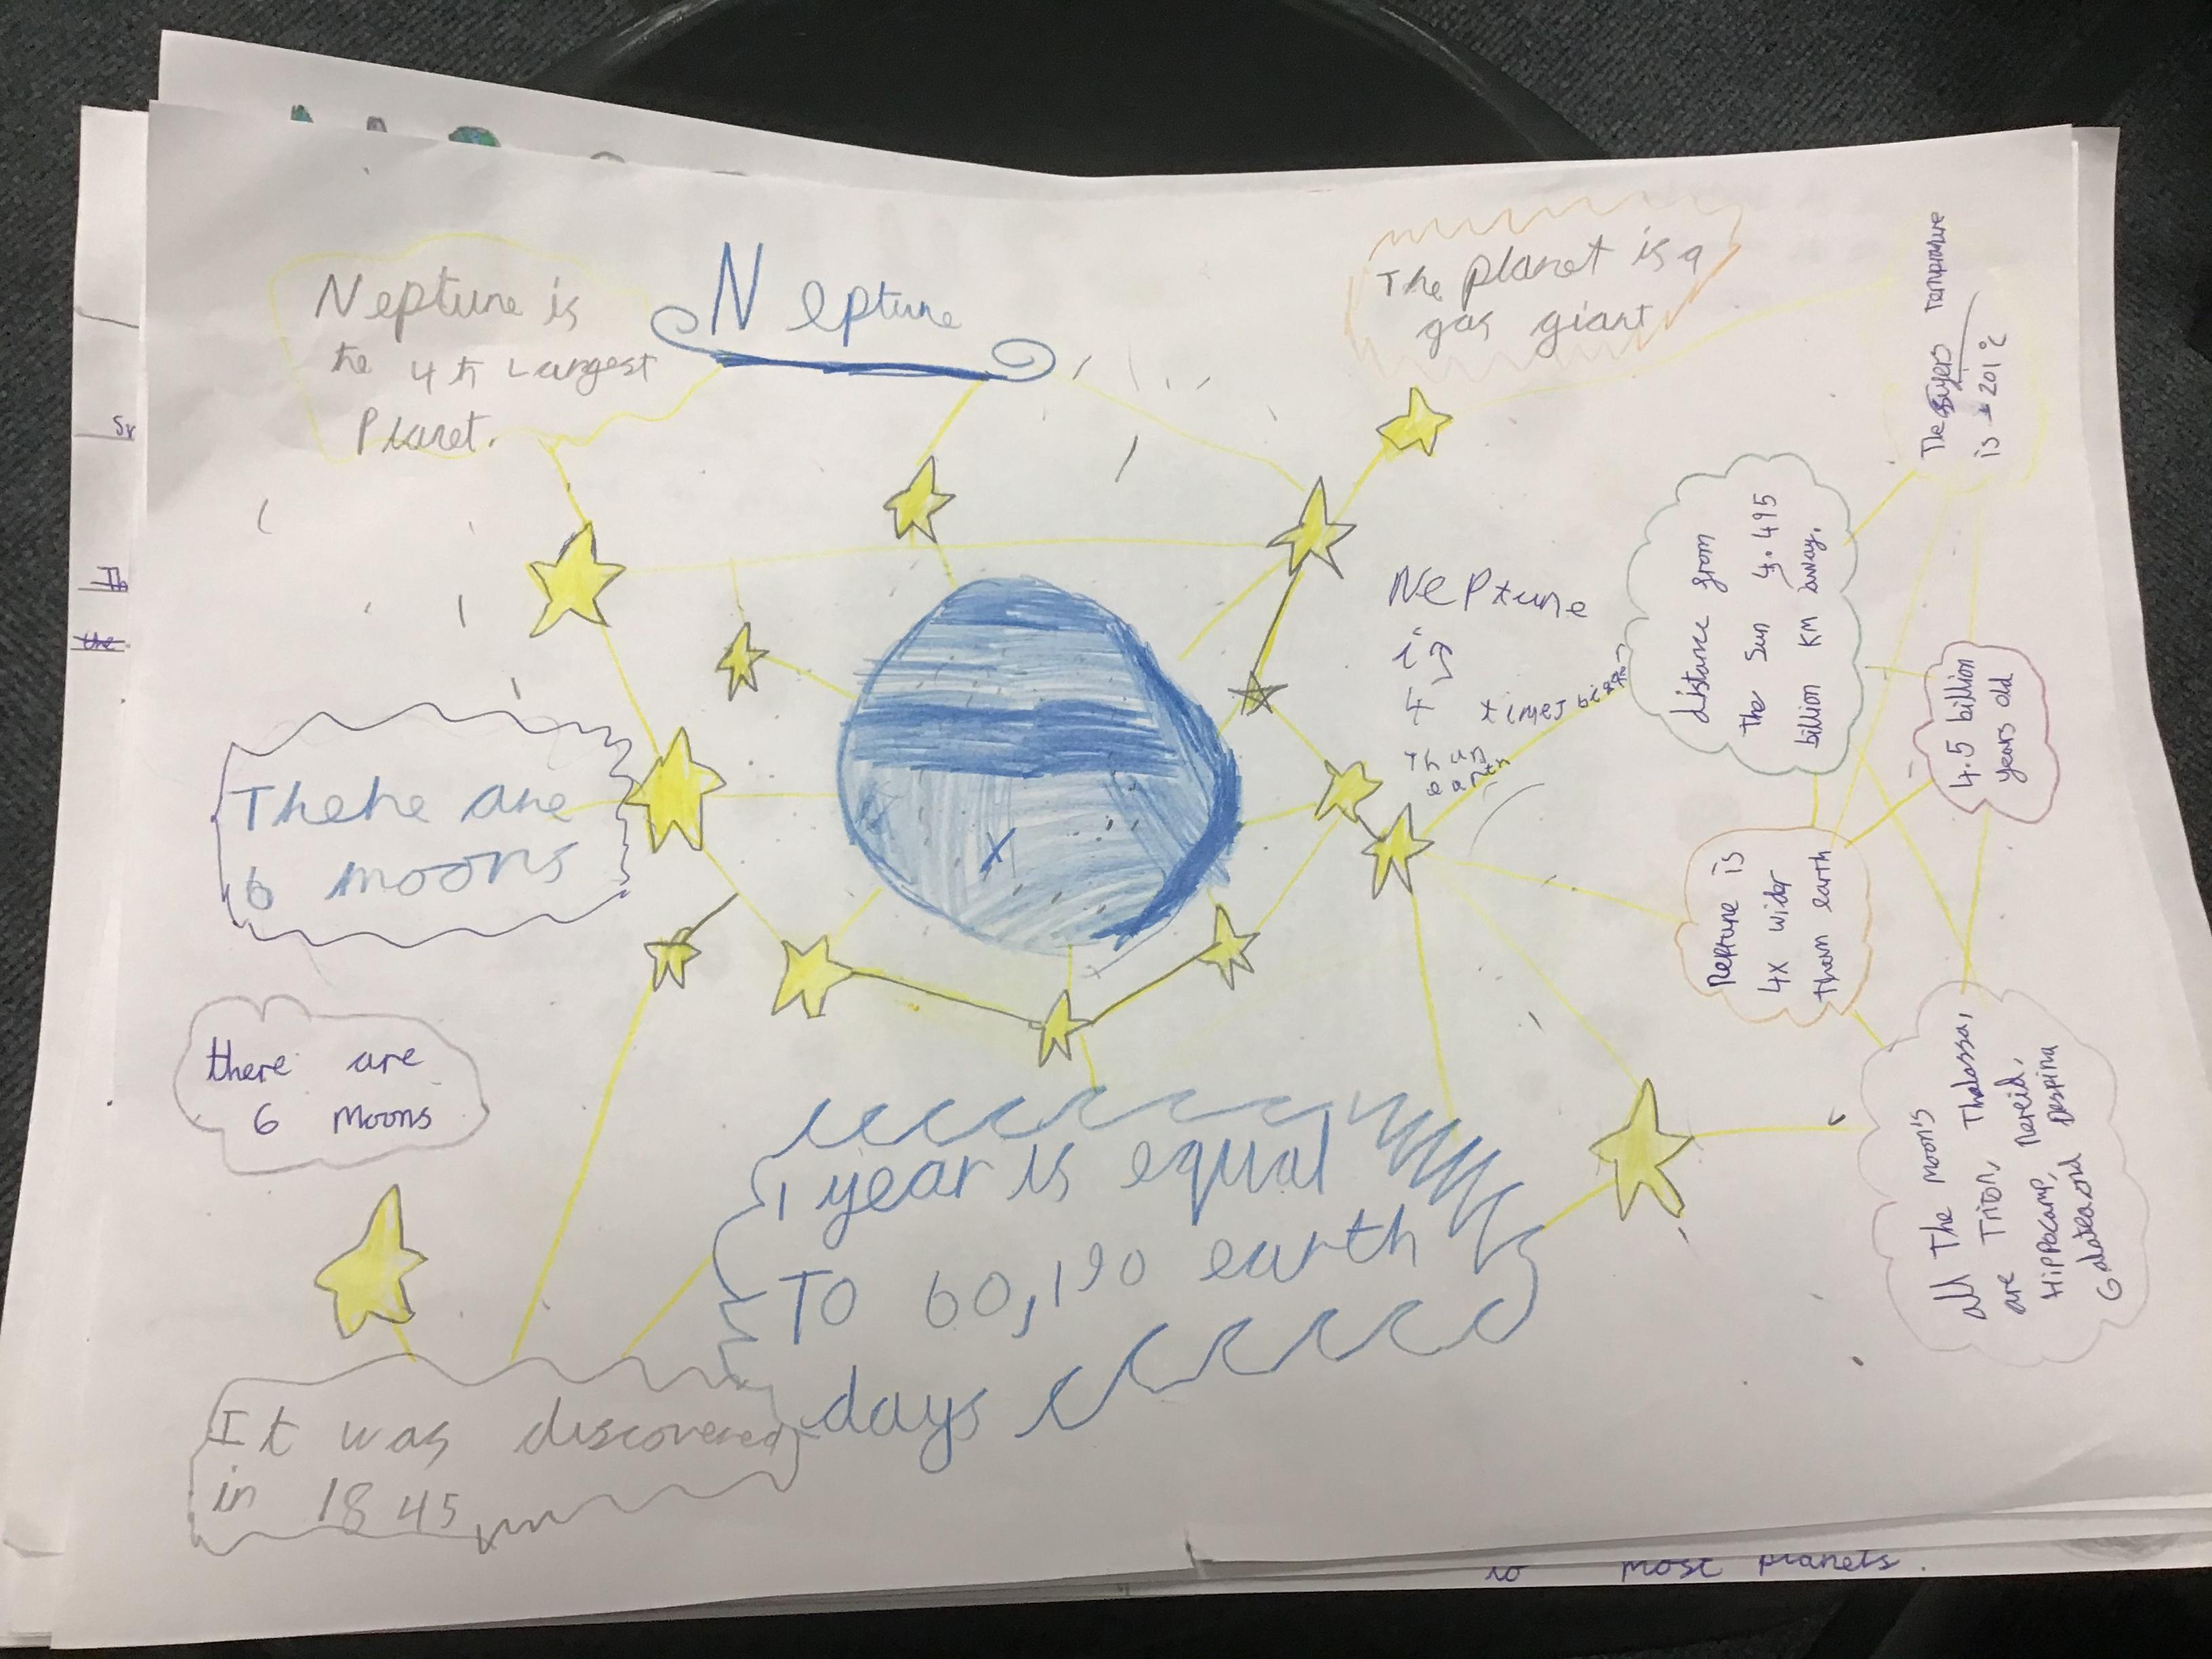 Neptune
Neptune is
the 4th Largest
Planet.
The planet is a
gas giant
temprature
is 201°c
distance from
the Sun 4.495
billion KM away.
Neptune
is
4 times
than
earth
4.5 billion
years old
Neptune is
4x wider
then earth
There are
6 moons
there are
6 Moons
all The moon's
are Triton, Thalassa,
Hippocamp, Nereid,
Galatea and Despina
1 year is equal
To 60,190 earth
days
It was discovered
in 1845
to most planets.